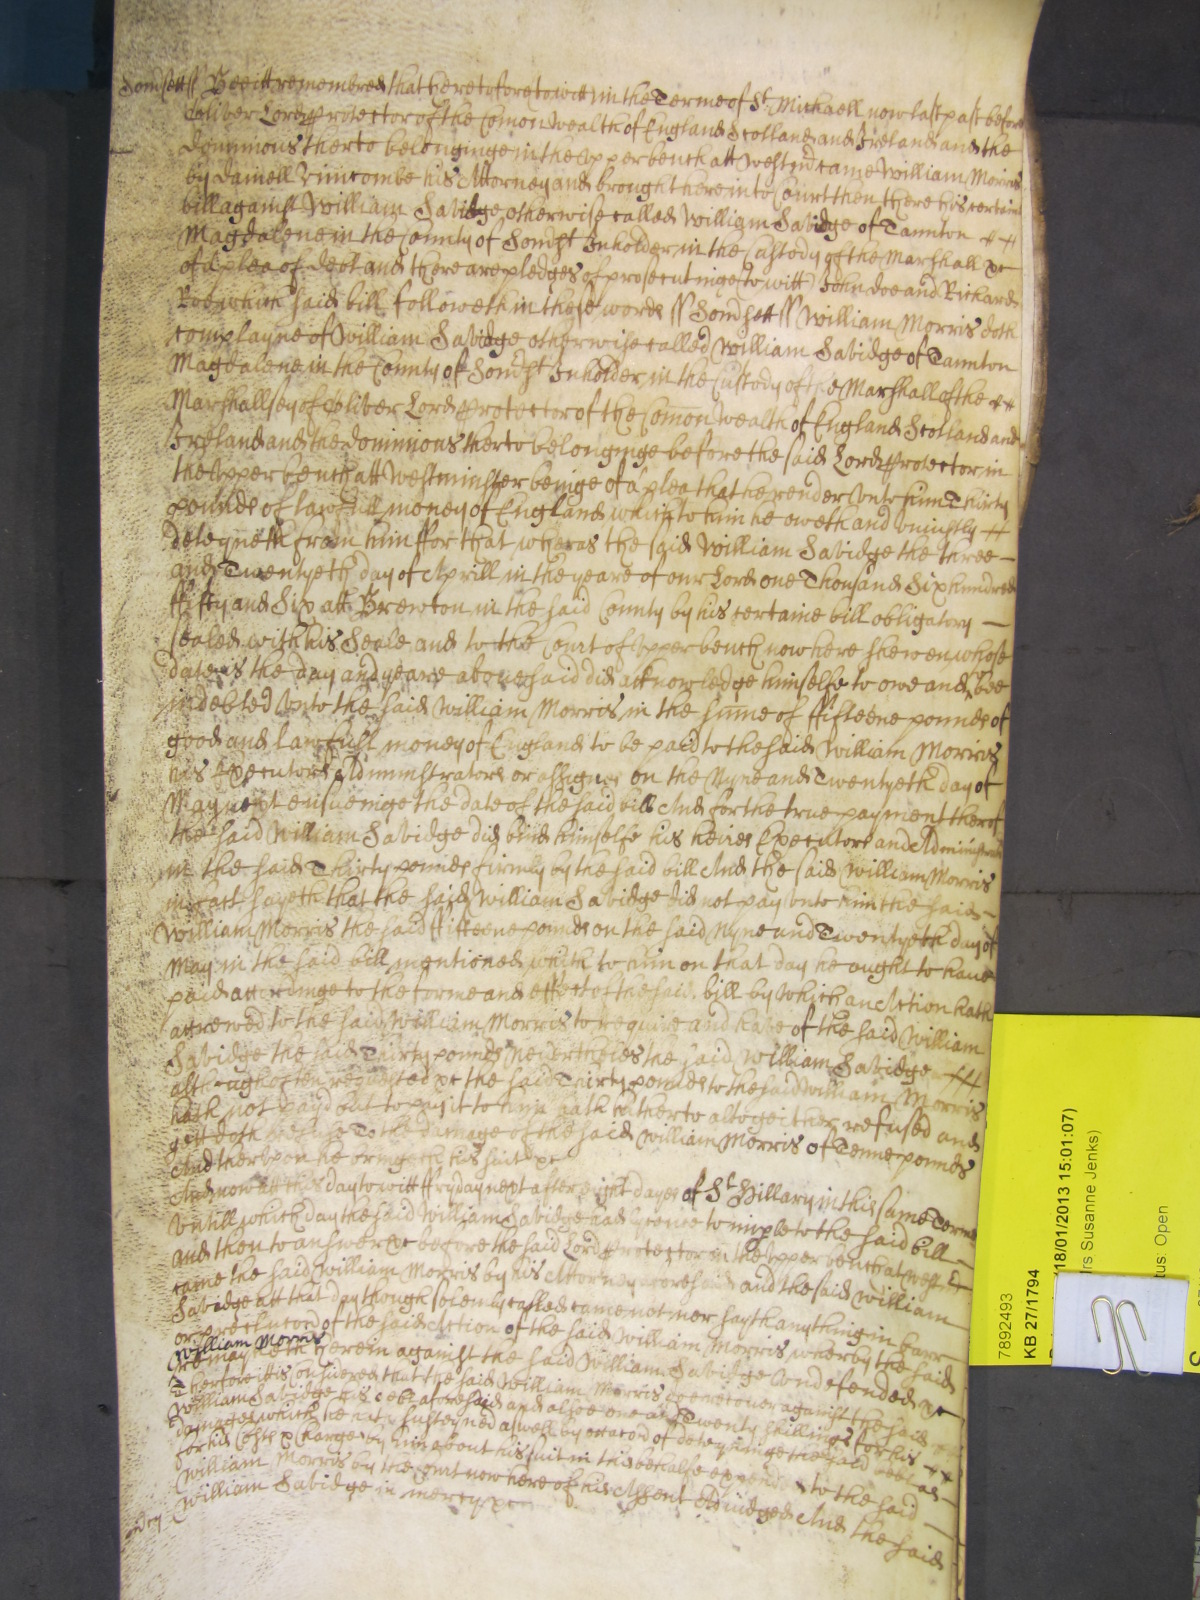 Somsett ss Bee itt remembred that heretofore to witt in the Terme of St. Michaell now last past before
Oliver Lord Protector of the Comon Wealth of England Scotland and Ireland and the
Dominions therto belonginge in the Upper bench att Westmr came William Morris
by Daniell Vinicombe his Attorney and brought here into Court then there his certaine
bill against William Savidge otherwise called William Savidge of Taunton
Magdalene in the County of Somst Inholder in the Custody of the Marshall &c
of a plea of debt and there are pledges of prosecutinge to witt John Doe and Richard
Roe which said bill followeth in these words ss Somsett ss William Morris doth
complayne of William Savidge otherwise called William Savidge of Taunton
Magdalene in the County of Somst Inholder in the Custody of the Marshall of the
Marshallsey of Oliver Lord Protector of the Comon Wealth of England Scotland and
Ireland and the dominions therto belonginge before the said Lord Protector in
the Upper bench att Westminster beinge of a plea that he render unto him Thirty
pounds of lawfull money of England which to him he oweth and uniustly
deteyneth from him ffor that wheras the said William Savidge the three
and Twentyeth day of Aprill in the yeare of our Lord one Thousand Six hundred
ffifty and Six att Brewton in the said County by his certaine bill obligatory
sealed with his Seale and to the Court of Upper bench now here shewen whose
date is the day and yeare abovesaid did acknowledge himselfe to owe and bee
indebted unto the said William Morris in the sume of ffifteene pounds of
good and lawfull money of England to be paid to the said William Morris
his Executors Administrators or assignes on the Nyne and Twentyeth day of
May next ensueinge the date of the said bill And for the true payment therof
the said William Savidge did bind himselfe his heires Executors and Administrators
in the said Thirty pounds firmly by the said bill And the said William Morris
in fact sayeth that the said William Savidge did not pay unto him the said
William Morris the said ffifteene pounds on the said Nyne and Twentyeth day of
May in the said bill mentioned which to him on that day he ought to have
paid accordinge to the forme and effect of the said bill by which an Action hath
accrewed to the said William Morris to require and have of the said William
Savidge the said Thirty pounds Neverthelesthe said William Savidge
although often requested &c the said Thirty pounds to the said William Morris
hath not payd but to pay it to him hath hitherto altogeither refused and
yett doth refuse To the damage of the said William Morris of Tenne pounds
And therupon he bringeth his suit &c
And now att this day to witt ffryday next after eight dayes of St Hillary in this same Terme
Untill which day the said William Savidge had lycence to imple to the said bill
and then to answere &c before the said Lord Protector in the Upper bench at Westmr
came the said William Morris by his Attorney aforesaid and the said William
Savidge att that day though solemly called came not nor sayth anything in barr
or preclucon of the said Action of the said William Morris wherby the said
William Morris
remayneth herein against the said William Savidge undefended &c
Therfore itt is considered that the said William Morris doe recover against the said
William Savidge his debt aforesaid and alsoe one and Twenty shillings for his
damages which he hath susteyned aswell by occacon of deteyninge the said debt as
for his Costs & Charges by him about his suit in this behalfe expended to the said
William Morris by the Court now here of his Assent Adiudged And the said
William Savidge in mercy &c
mercy
7892493
KB 27/1794
18/01/2013 15:01:07)
rs Susanne Jenks)
tus: Open